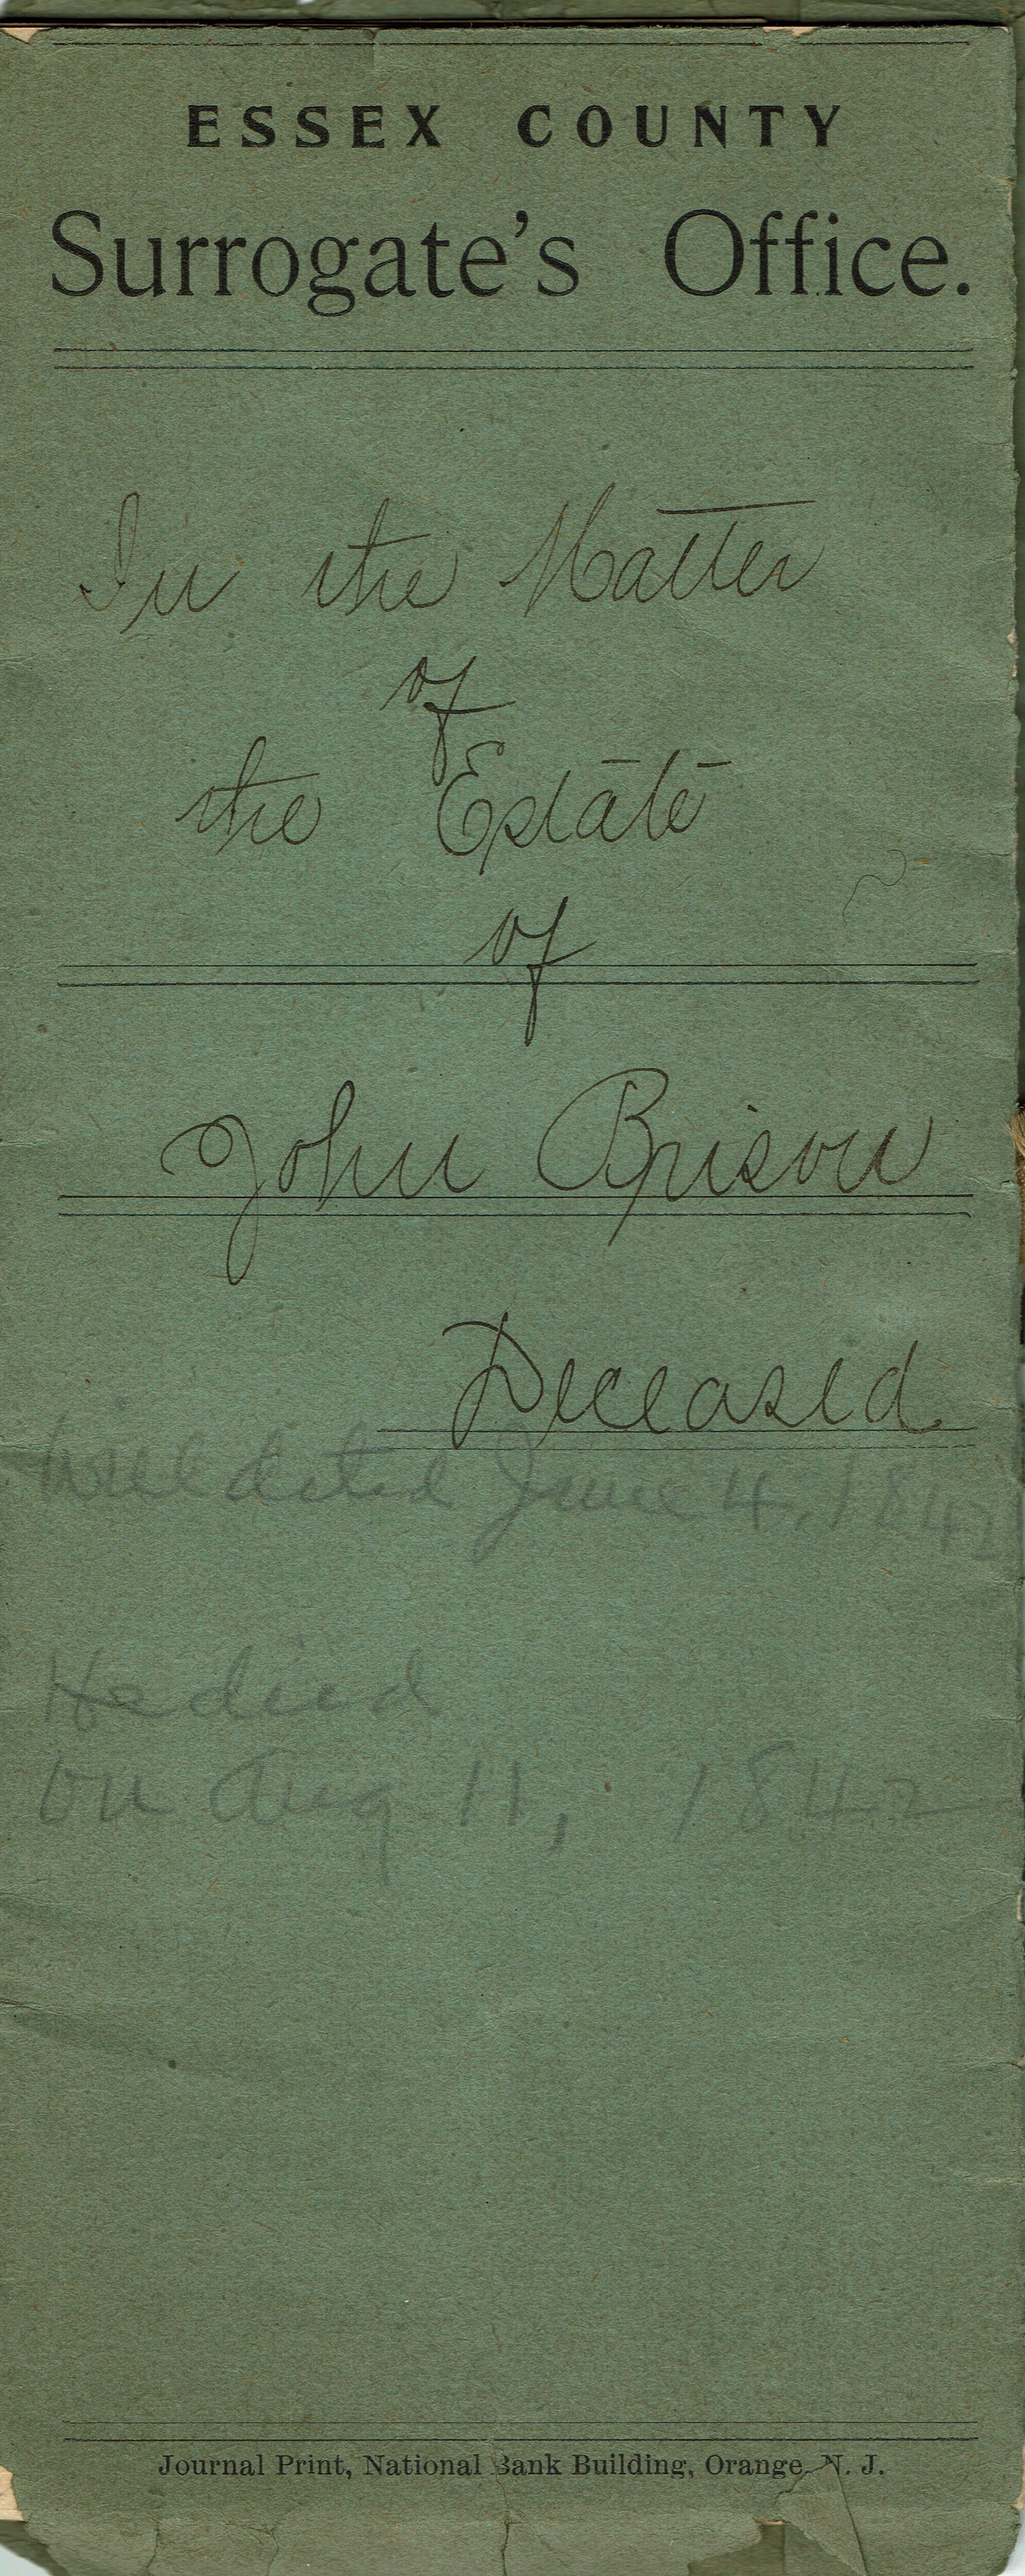 ESSEX COUNTY
Surrogate's Office.
In the Matter
of
the Estate
of
John Brison
Deceased
Will dated June 4, 1842
He died
on Aug 11, 1842
Journal Print, National Bank Building, Orange, N. J.